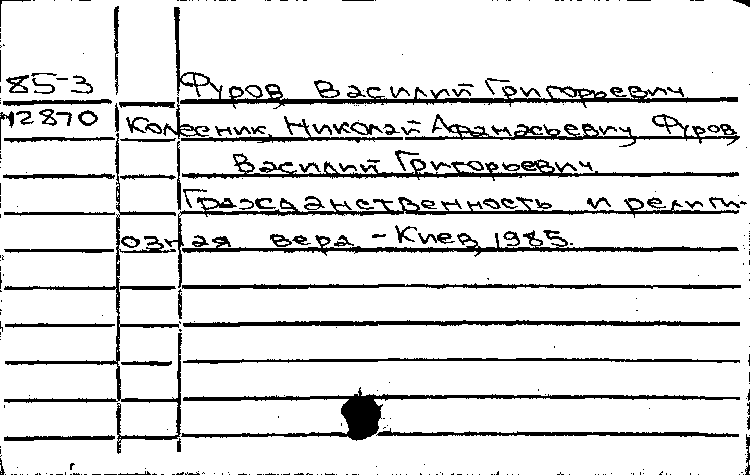 85-3 Фуров, Василий Григорьевич
12870 Колесник, Николай Афанасьевич, Фуров,
Василий Григорьевич.
Гражданственность и религи-
озная вера – Киев, 1985.